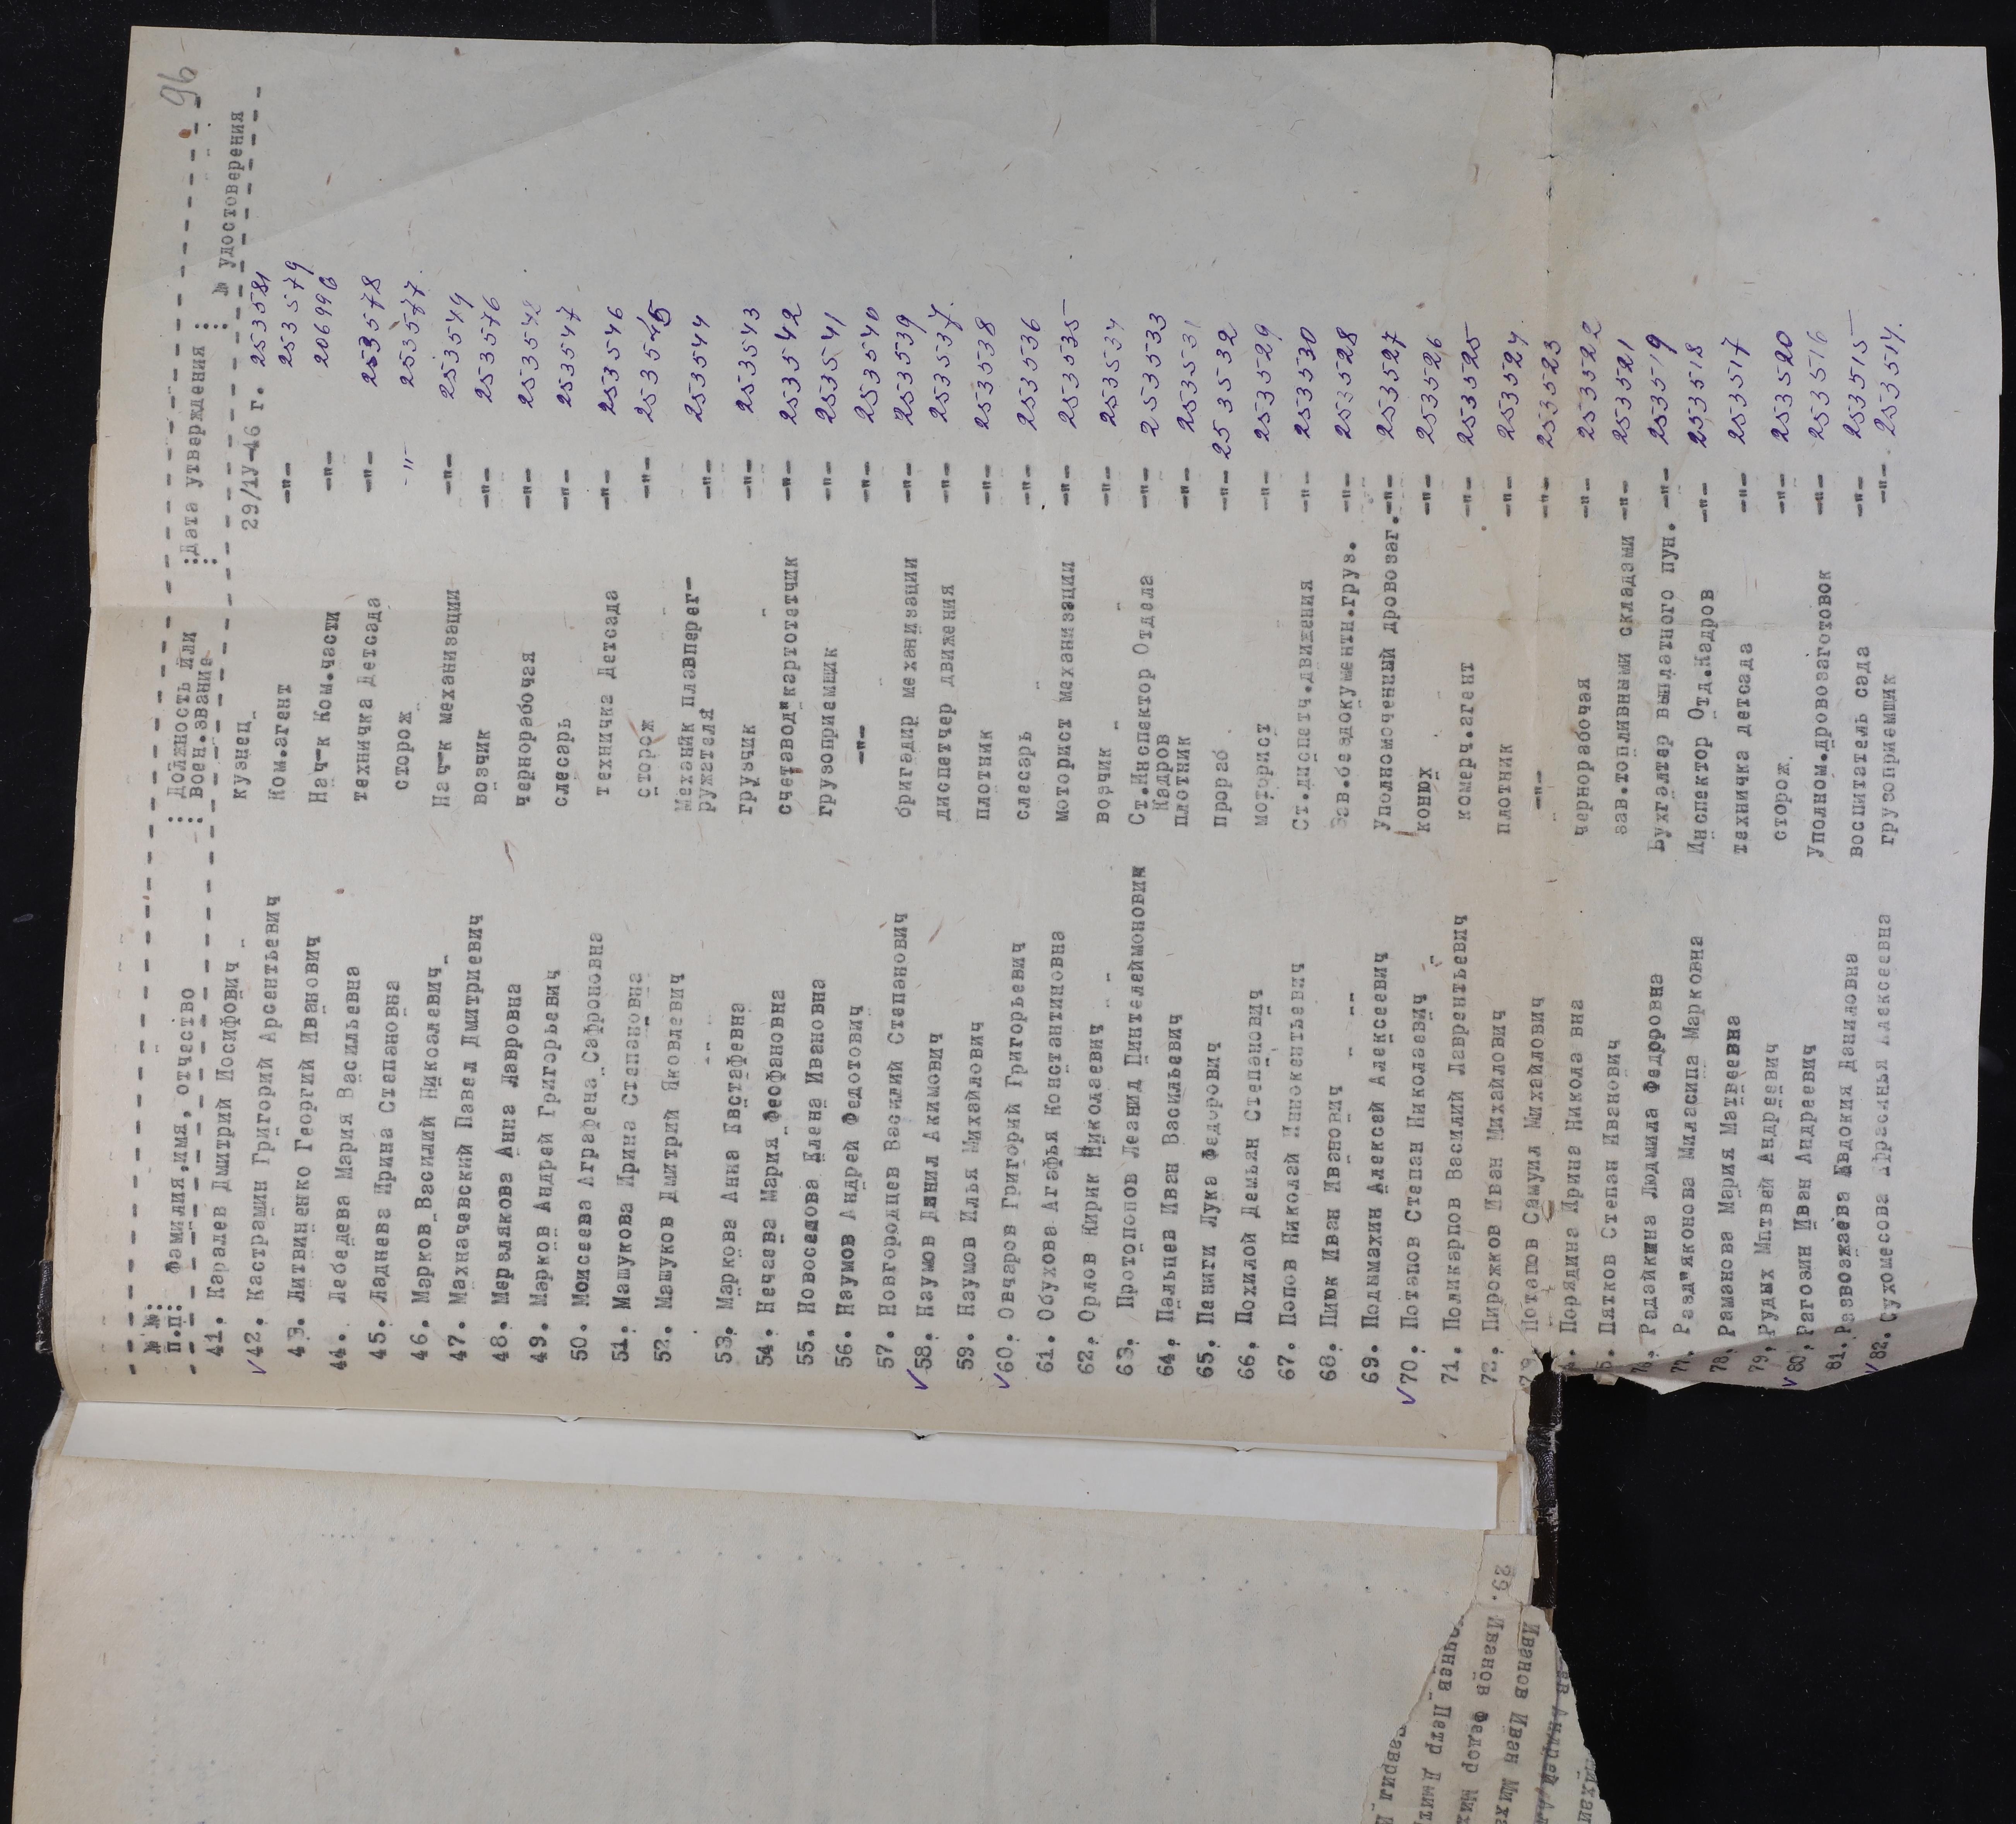 96
№№ : Фамилия,имя, отчество : Должность или : Дата утверждения : № удостоверения
п.п: : Воен.звание :
41. Каралев Дмитрий Иосифович кузнец 29/1У-46 г. 253581
42. Кастрамин Григорий Арсентьевич Ком.агент -"- 253579
43. Литвиненко Георгий Иванович Нач-к Ком.части -"- 206996
44. Лебедева Мария Васильевна техничка Детсада -"- 253578
45. Ладнева Ирина Степановна сторож -"- 253577
46. Марков Василий Николаевич Нач-к механизации -"- 253549
47. Махначевский Павел Дмитриевич возчик -"- 253576
48. Мерзлякова Анна Лавровна чернорабочая -"- 253548
49. Марков Андрей Григорьевич слесарь -"- 253547
50. Моисеева Аграфена Сафроновна техничка Детсада -"- 253546
51. Машукова Ирина Степановна сторож -"- 253545
52. Машуков Дмитрий Яковлевич Механик плавперег- -"- 253544
ружателя
53. Маркова Анна Евстафевна грузчик -"- 253543
54. Нечаева Мария Феофановна счетавод"картотетчик -"- 253542
55. Новоселова Елена Ивановна грузоприемщик -"- 253541
56. Наумов Андрей Федотович -"- -"- 253540
57. Новгородцев Василий Степанович бригадир механизации -"- 253539
58. Наумов Данил Акимович диспетчер движения -"- 253537
59. Наумов Илья Михайлович плотник -"- 253538
60. Овчаров Григорий Григорьевич слесарь -"- 253536
61. Обухова Агафья Константиновна моторист механизации -"- 253535
62. Орлов Кирик Николаевич возчик -"- 253534
63. Протопопов Леанид Пинтелеймонович Ст.Инспектор Отдела -"- 253533
Кадров
64. Пальцев Иван Васильевич плотник -"- 253531
65. Пениги Лука Федорович прораб -"- 253532
66. Похилой Демьян Степанович моторист -"- 253529
67. Попов Николай Инокентьевич Ст.диспетч.движения -"- 253530
68. Пиюк Иван Иванович Зав.бездокументн.груз. -"- 253528
69. Подымахин Алексей Алексеевич Уполномоченный дровозаг. -"- 253527
70. Потапов Степан Николаевич конюх -"- 253526
71. Поликарпов Василий Лаврентьевич комерч.агент -"- 253525
72. Пирожков Иван Михайлович плотник -"- 253524
73. Потапов Самуил Михайлович -"- -"- 253523
4. Порядина Ирина Никола вна чернорабочая -"- 253522
5. Пятков Степан Иванович зав.топливными складами -"- 253521
76. Радайкина Людмила Федоровна Бухгалтер выплатного пун. -"- 253519
77. Разд"яконова Миласипа Марковна Инспектор Отд.Кадров -"- 253518
78. Раманова Мария Матвеевна техничка детсада -"- 253517
79. Рудых Мптвей Андреевич сторож -"- 253520
80. Рагозин Иван Андреевич Уполном.дровозаготовок -"- 253516
81. Развозжаева Авдокия Даниловна воспитатель сада -"- 253515
82. Сухомесова Афрасинья Алексеевна грузоприемщик -"- 253514
29. Иванов Федор Мих
Иванов Иван Миха
Петр Дмит